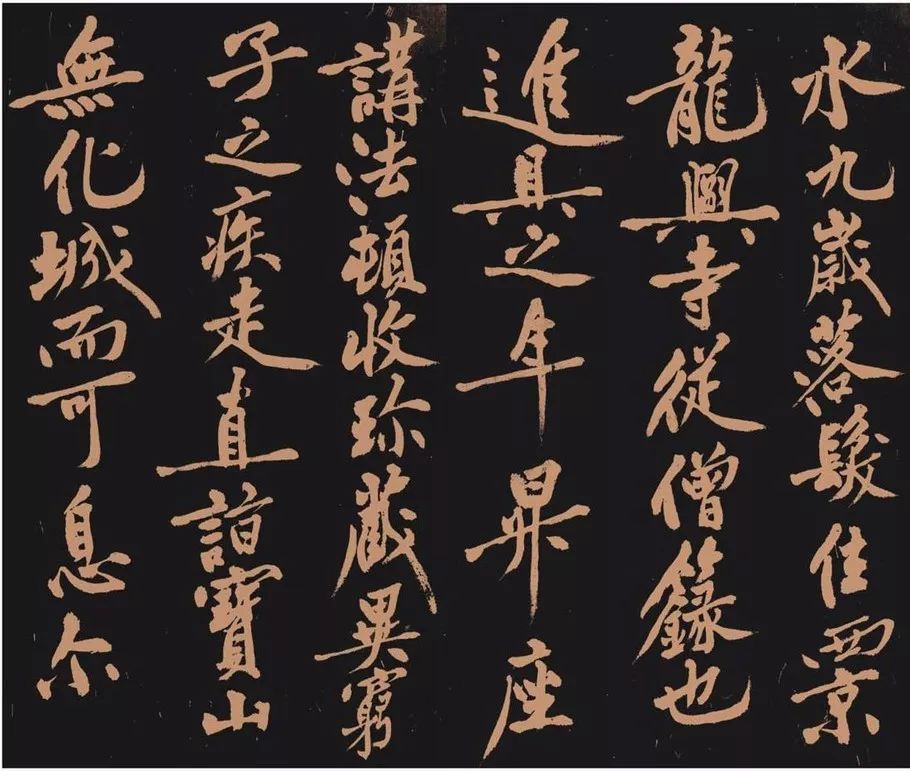 水九歲落髮住西京
龍興寺從僧籙也
進具之年昇座
講法頓收珎藏異窮
子之疾走直詣寶山
無化城而可息尒